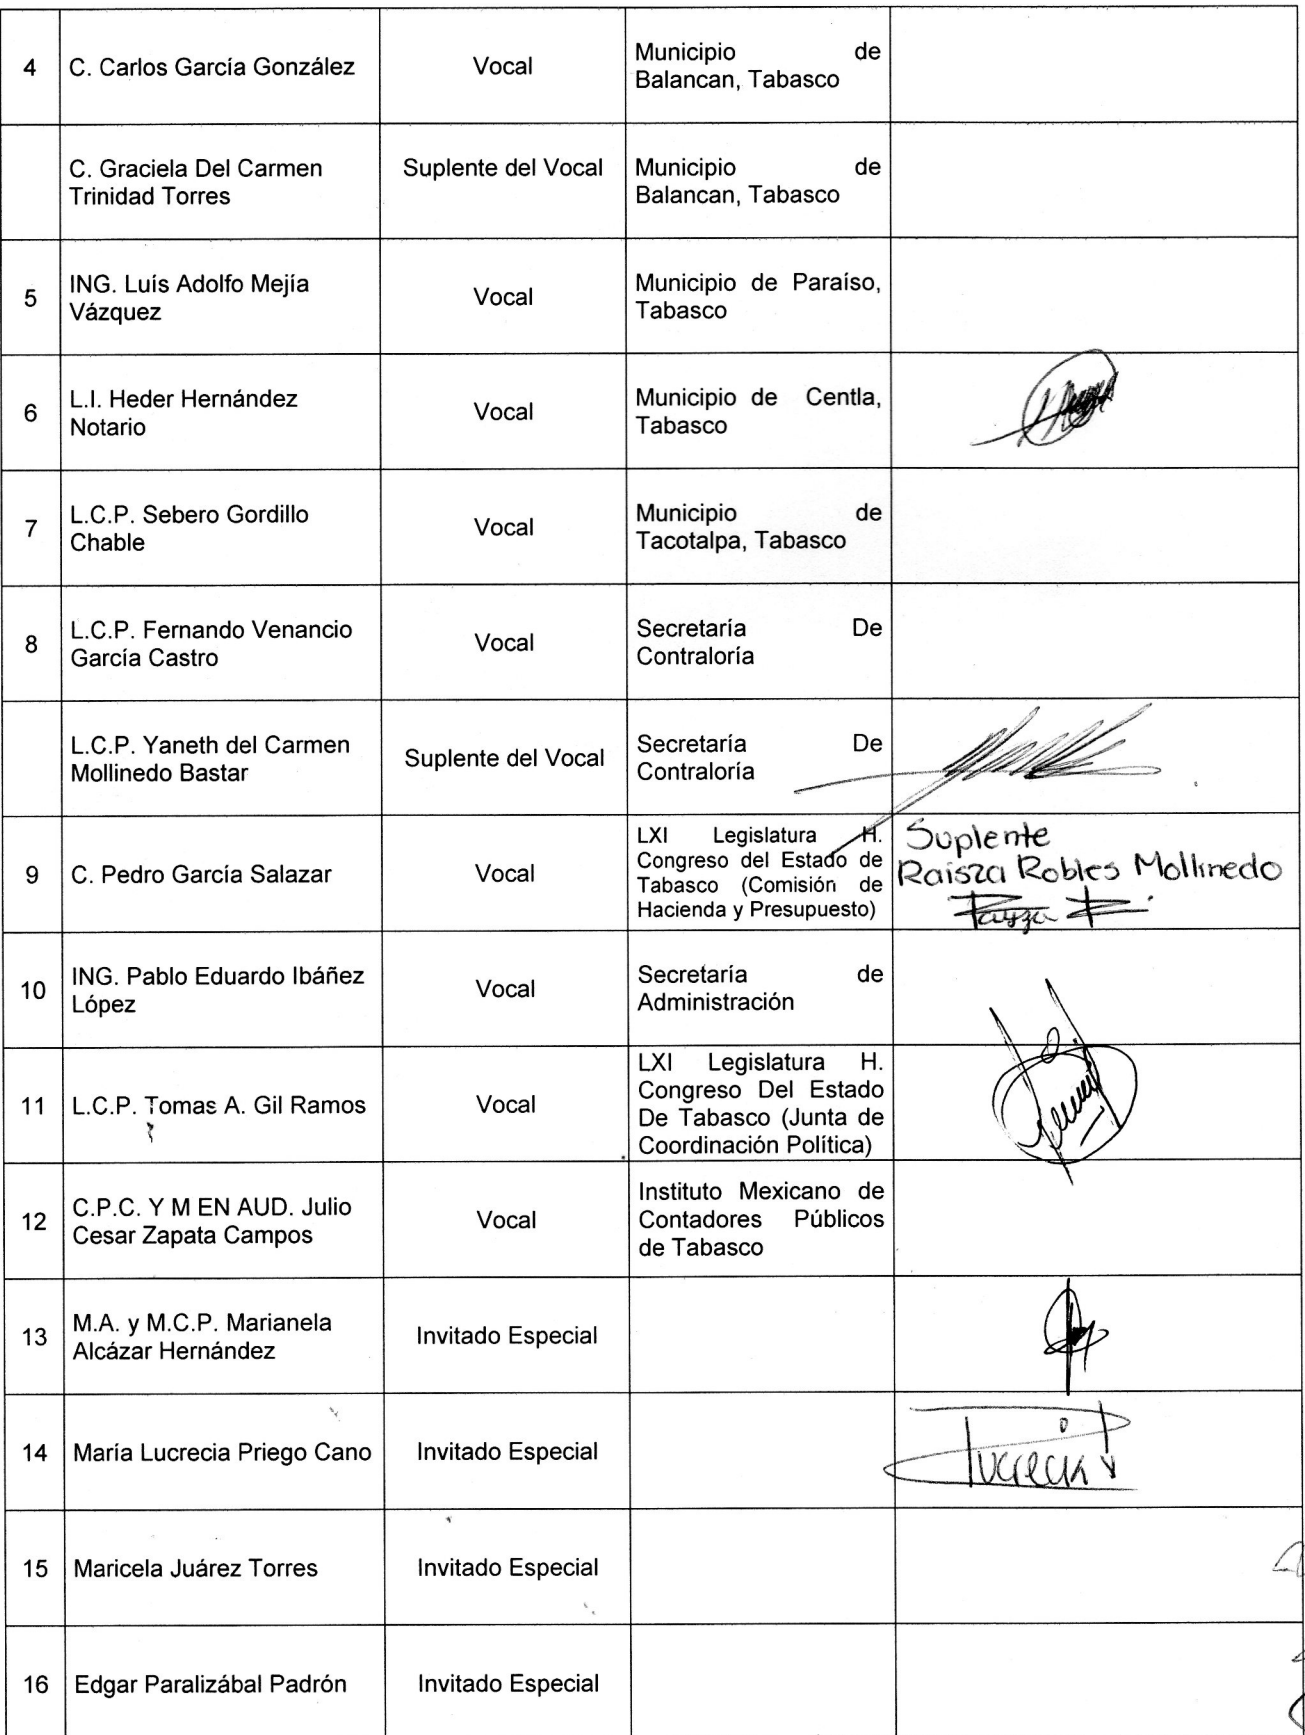 4
C. Carlos García González
Vocal
Municipio de
Balancan, Tabasco
C. Graciela Del Carmen
Trinidad Torres
Suplente del Vocal
Municipio de
Balancan, Tabasco
5
ING. Luís Adolfo Mejía
Vázquez
Vocal
Municipio de Paraíso,
Tabasco
6
L.I. Heder Hernández
Notario
Vocal
Municipio de Centla,
Tabasco
7
L.C.P. Sebero Gordillo
Chable
Vocal
Municipio de
Tacotalpa, Tabasco
8
L.C.P. Fernando Venancio
García Castro
Vocal
Secretaría De
Contraloría
L.C.P. Yaneth del Carmen
Mollinedo Bastar
Suplente del Vocal
Secretaría De
Contraloría
9
C. Pedro García Salazar
Vocal
LXI Legislatura H.
Congreso del Estado de
Tabasco (Comisión de
Hacienda y Presupuesto)
Suplente
Raisza Robles Mollinedo
10
ING. Pablo Eduardo Ibáñez
López
Vocal
Secretaría de
Administración
11
L.C.P. Tomas A. Gil Ramos
Vocal
LXI Legislatura H.
Congreso Del Estado
De Tabasco (Junta de
Coordinación Política)
12
C.P.C. Y M EN AUD. Julio
Cesar Zapata Campos
Vocal
Instituto Mexicano de
Contadores Públicos
de Tabasco
13
M.A. y M.C.P. Marianela
Alcázar Hernández
Invitado Especial
14
María Lucrecia Priego Cano
Invitado Especial
Lucrecia P
15
Maricela Juárez Torres
Invitado Especial
16
Edgar Paralizábal Padrón
Invitado Especial